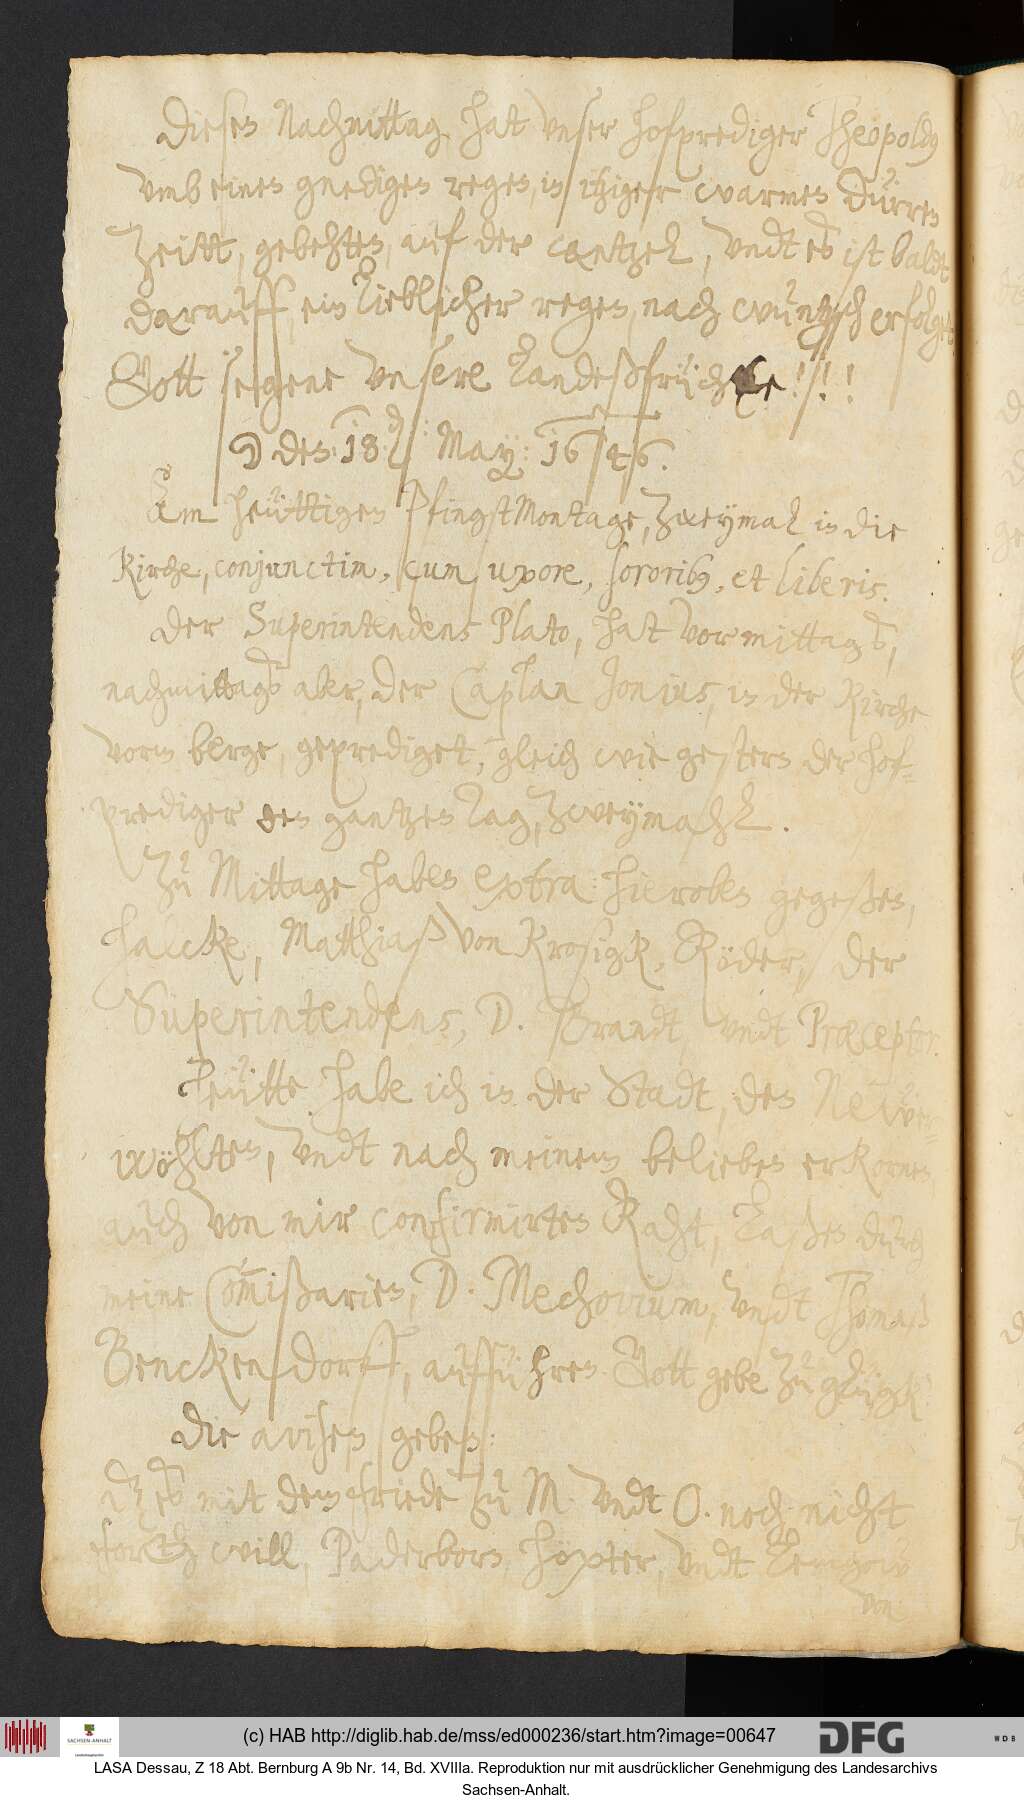 Diesen Nachmittag, hat unser hofprediger Theopoldus
umb einen gnedigen regen, in itziger warmen dürren
Zeitt, gebehten, auf der cantzel, undt es ist baldt
darauff, ein lieblicher regen, nach wuntzsch erfolget.
Gott segene unsere Landeßfrüchte! ! !
☽ den: 18.den: May: 1646.
Am heüttigen PfingstMontage, Zweymal in die
Kirche, conjunctim, cum uxore, sororibus, et liberis.
Der Superintendens Plato, hat vormittags,
nachmittags aber, der Caplan Jonius, in der Kirche
vorm berge, geprediget, gleich wie gestern der hof-
prediger den gantzen Tag, Zweymahl.
Zu Mittage haben extra: hieroben gegeßen,
Halcke, Matthiaß von Krosigk, Röder, der
Superintendens, D. Brandt, undt Præceptor.
Heütte habe ich in der Stadt, den Neüer-
wöhlten, undt nach meinem belieben erkornen
auch von mir confirmirten Raht, laßen durch
meine Commißarien, D. Mechovium, undt Thomaß
Benckendorff, aufführen. Gott gebe zu glügk.
Die avisen geben:
dz es mit dem friede zu M. undt O. noch nicht
fortt will, Paderborn, Höxter, undt Lemgow
von
(c) HAB http://diglib.hab.de/mss/ed000236/start.htm?image=00647
SACHSEN-ANHALT
DFG
WDB
LASA Dessau, Z 18 Abt. Bernburg A 9b Nr. 14, Bd. XVIIIa. Reproduktion nur mit ausdrücklicher Genehmigung des Landesarchivs
Sachsen-Anhalt.